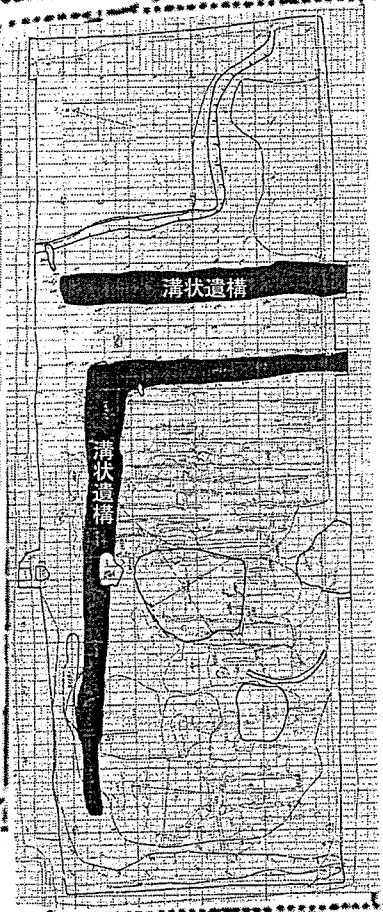 溝状遺構
溝状遺構